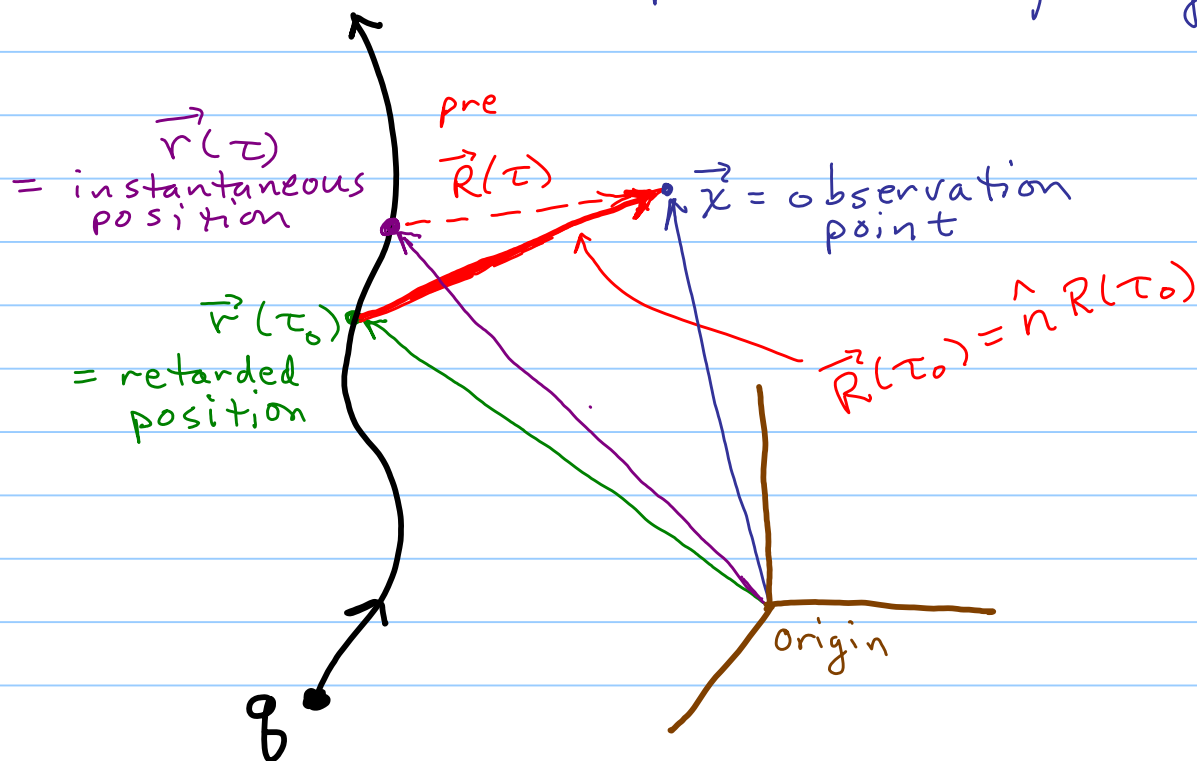 pre
r⃗(τ)
= instantaneous
position
R⃗(τ)
x⃗ = observation
point
r⃗(τ₀)
= retarded
position
R⃗(τ₀) = n̂ R(τ₀)
origin
q